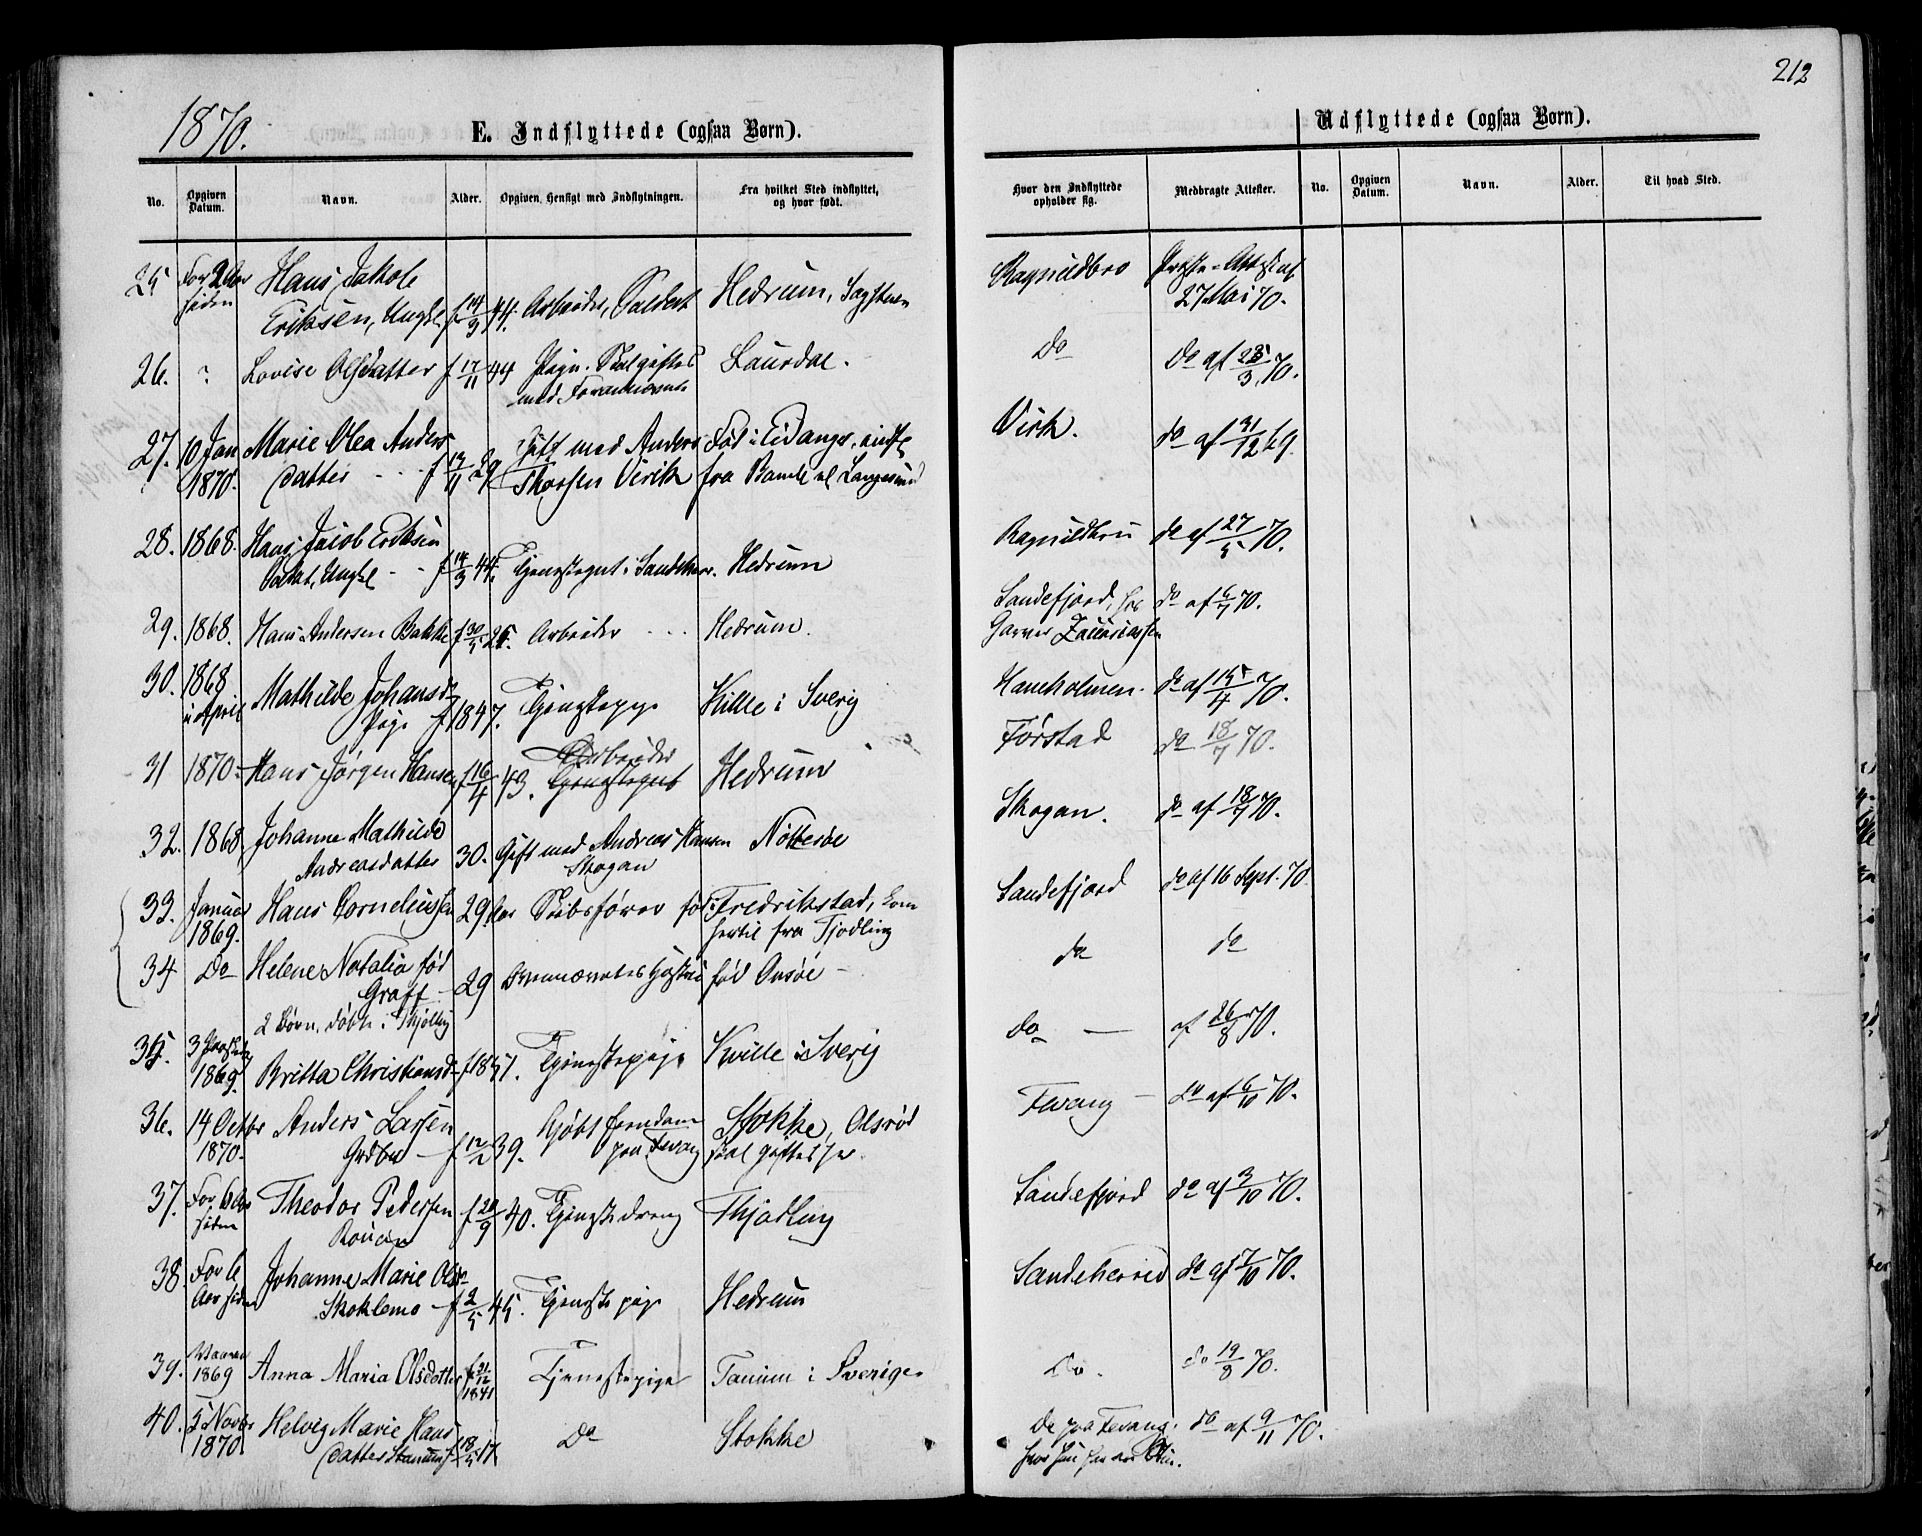 212
1870.
E. Indflyttede (ogsaa Børn).
Udflyttede (ogsaa Børn).
No. Opgiven Datum. Navn. Alder. Opgiven Hensigt med Indflytningen. Fra hvilket Sted indflyttet, og hvor født. Hvor den Indflyttede opholder sig. Medbragte Attester. No. Opgiven Datum. Navn. Alder. Til hvad Sted.
25 For 2 Aar Hans Jakob
siden Eriksen, Ungkl f 14/3 44. Arbeider, Soldat Hedrum, Ragnildbro Præste-Attest af
27 Mai 70.
26. Lovise Olsdatter f 17/11 44 Pige. Skal giftes Laurdal. Do Do af 25/3 70.
med Foranstaaende
27. 10 Jan Marie Olea Anders Gift med Anders Fød i Eidanger, indfl Virik. do af 31/12 69.
1870. datter f 13/11 29 Thorsen Virik fra Bamle el Langesund
28. 1868. Hans Jacob Eriksen Ragnildbru do af 27/5 70.
Soldat, Ungkl f 14/3 44. Tjenestegut i Sandeherr. Hedrum
29. 1868. Hans Andersen Bakke f 30/5 25. Arbeider Hedrum. Sandefjord, hos do af 6/7 70.
Garver Zachariassen
30. 1868 Mathilde Johansd Tjenestepige Kille i Sverig Haneholmen. do af 15/4 70.
i April Pige f 1847.
31 1870. Hans Jørgen Hansen f 16/4 43. Arbeider Hedrum Førstad do 18/7 70.
Tjenestegut
32. 1868. Johanne Mathilde Skogan. do af 18/7 70.
Andreasdatter 30. Gift med Andreas Hansen Nøtterøe
Skogan
33. Januar Hans Corneliussen 29 Aar Skibsfører fød i Fredrikstad, kom Sandefjord do af 16 Sept. 70
1869. hertil fra Tjødling
34 Do Helene Natalia fød 29 Hustru fød Onsøe do do
Graff
2 Børn, døbte i Thjølling
35. 1869. Britta Christiansd f 1847. Tjenestepige Kville i Sverig do af 26/8 70.
36. 14 Octbr Anders Larsen Kjøbt Eiendom Stokke, Olsrød Fevang do af 6/10 70.
1870. Grdbr f 12/2 39. paa Fevang skal giftes her.
37. For 6 Aar Theodor Pedersen f 20/9 40. Tjenestedreng Thjødling Sandefjord do af 3/10 70.
siden
38. For 6 Johanne Marie Olsd Sandeherred do af 7/10 70.
Aar siden Skoklemo f 2/5 45. Tjenestepige Hedrum
39. Vaaren Anna Maria Olsdotter f 21/12 Tjenestepige Tanum i Sverige Do. do 19/8 70.
1869 1841
40. 5 Novbr Helvig Marie Hans Do Stokke Do paa Fevang. do af 9/11 70.
1870. datter f 18/5 47.